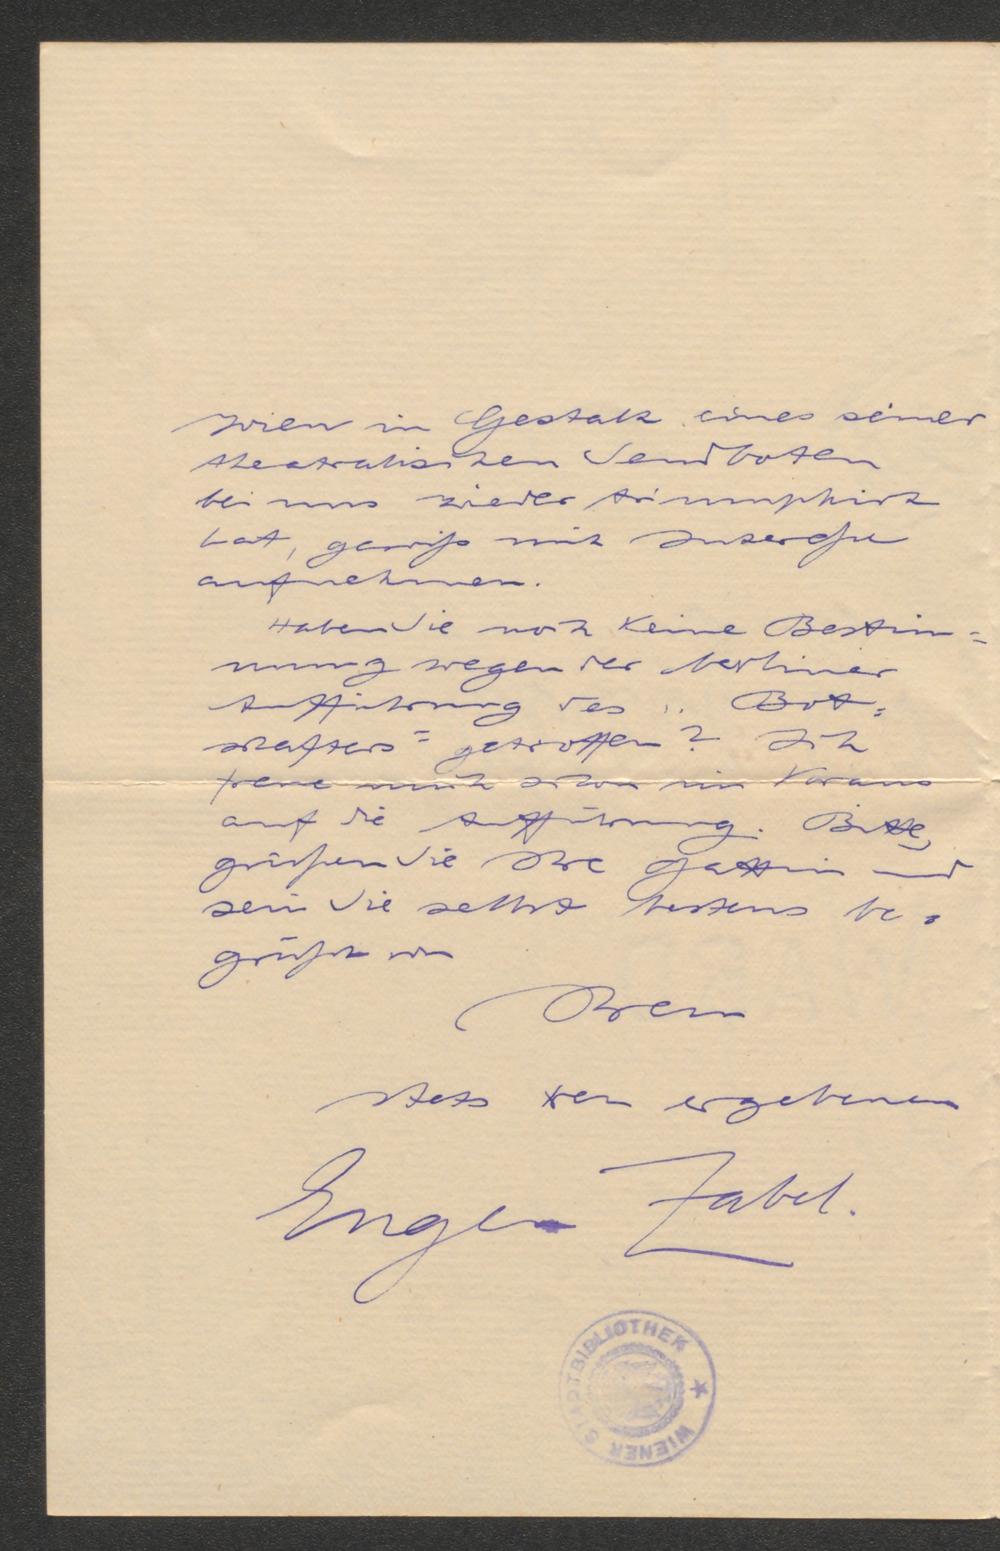 Wien in Gestalt eines seiner
theatralischen Sendboten
bei uns wieder triumphirt
hat, gewiß mit Interesse
aufnehmen.
Haben Sie noch keine Bestim=
mung wegen der berliner
Aufführung des „Bot=
schafters" getroffen? Ich
freue mich schon im Voraus
auf die Aufführung. Bitte,
grüßen Sie Ihre Gattin und
sein Sie selbst bestens be=
grüßt von
Ihrem
stets treu ergebenen
Eugen Zabel.
WIENER STADTBIBLIOTHEK